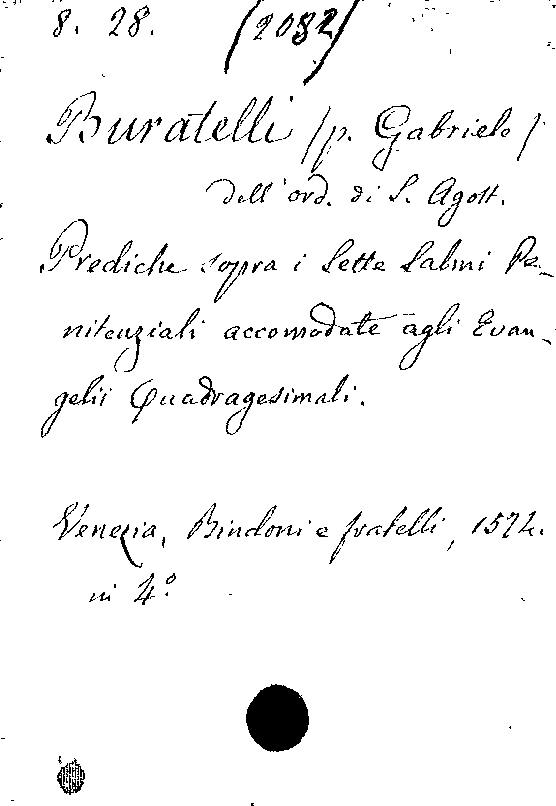 8. 28. (2082)
Buratelli (p. Gabriele)
dell' ord. di S. Agost.
Prediche sopra i Sette Salmi Pe-
nitenziali accomodate agli Evan-
gelii Quadragesimali.
Venezia, Bindoni e fratelli, 1574.
in 4°